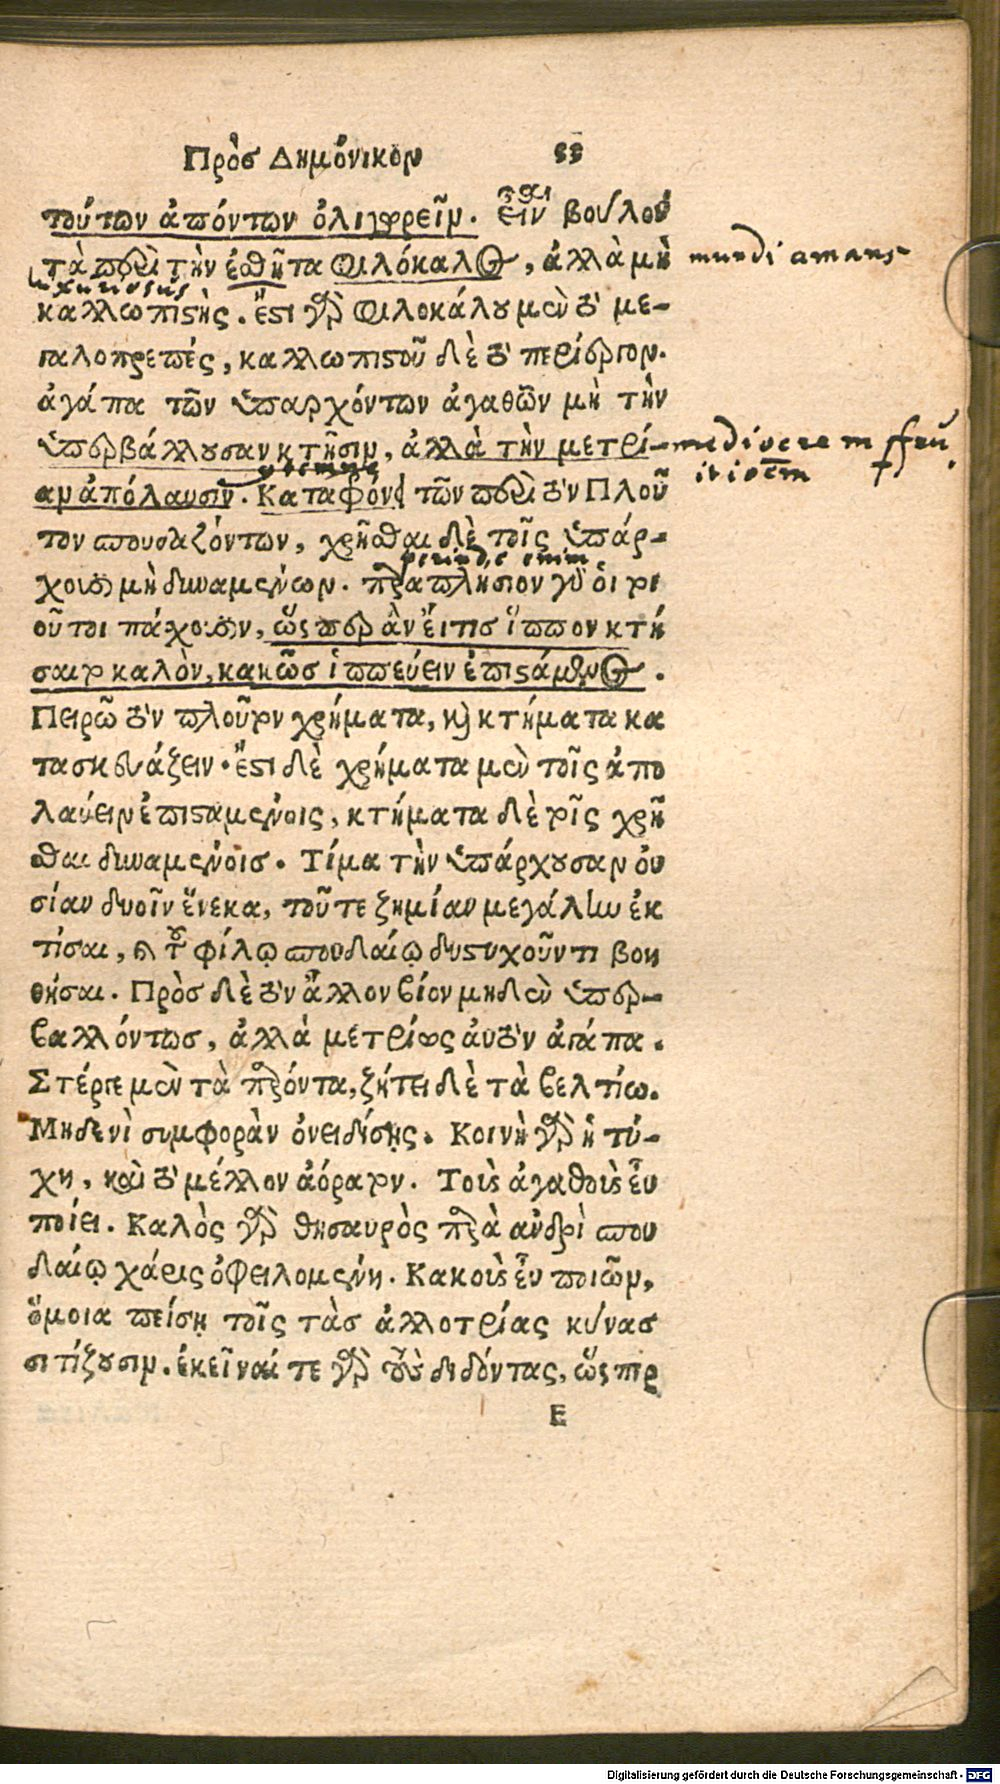 Πρὸσ Δημόνικον 33
τούτων ἀπόντων ὀλιγωρεῖν. εἶναι βούλου
τὰ περὶ τὴν ἐσθῆτα φιλόκαλος, ἀλλὰ μὴ mundi amans
luxuriosus
καλλωπιστὴς. ἔστι γὰρ φιλοκάλου μὲν τὸ με-
γαλοπρεπές, καλλωπιστοῦ δὲ τὸ περίεργον.
ἀγάπα τῶν ὑπαρχόντων ἀγαθῶν μὴ τὴν
ὑπερβάλλουσαν κτῆσιν, ἀλλὰ τὴν μετρί- mediocrem fru
itionem
contemne
αν ἀπόλαυσιν. Καταφρόνει τῶν περὶ τὸν Πλοῦ
τον σπουδαζόντων, χρῆσθαι δὲ τοῖς ὑπάρ-
perinde enim
χουσι μὴ δυναμένων. παραπλήσιον γὰρ οἱ τοι
οῦτοι πάσχουσιν, ὥσπερ ἂν εἴ τισ ἵππον κτή
σαιτο καλὸν, κακῶσ ἱππεύειν ἐπιστάμενος.
Πειρῶ τὸν πλοῦτον χρήματα, καὶ κτήματα κα
τασκευάζειν. ἔστι δὲ χρήματα μὲν τοῖς ἀπο
λαύειν ἐπισταμένοις, κτήματα δὲ τοῖς χρῆ
σθαι δυναμένοισ. Τίμα τὴν ὑπάρχουσαν οὐ
σίαν δυοῖν ἕνεκα, τοῦ τε ζημίαν μεγάλην ἐκ
τίσαι, καὶ τοῦ φίλῳ σπουδαίῳ δυστυχοῦντι βοη
θῆσαι. Πρὸσ δὲ τὸν ἄλλον βίον μηδὲν ὑπερ-
βαλλόντωσ, ἀλλὰ μετρίως αὐτὸν ἀγάπα.
Στέργε μὲν τὰ παρόντα, ζήτει δὲ τὰ βελτίω.
Μηδενὶ συμφορὰν ὀνειδίσῃς. Κοινὴ γὰρ ἡ τύ-
χη, καὶ τὸ μέλλον ἀόρατον. Τοὺς ἀγαθοὺς εὖ
ποίει. Καλὸς γὰρ θησαυρὸς παρὰ ἀνδρὶ σπου
δαίῳ χάρις ὀφειλομένη. Κακοὺς εὖ ποιῶν,
ὅμοια πείσῃ τοῖς τὰσ ἀλλοτρίας κύνασ
σιτίζουσιν. ἐκεῖναί τε γὰρ τοὺς διδόντας, ὥσπερ
E
Digitalisierung gefördert durch die Deutsche Forschungsgemeinschaft - DFG